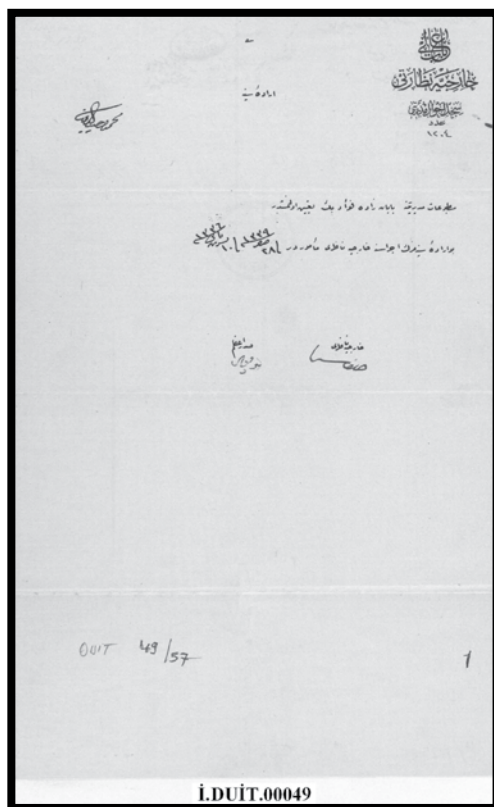 خارجیه نظارتی
عدد
١٢٠٤
اراده سنیه
مطبوعات مدیریتنه بابان زاده فؤاد بك تعیین اولنمشدر
بو اراده سنیه نك اجراسنه خارجیه ناظری مأموردر
٢٨ صفر ١٣٣٩
خارجیه ناظری
صفا
صدر اعظم
توفیق
DUIT 49/57
1
İ.DUİT.00049